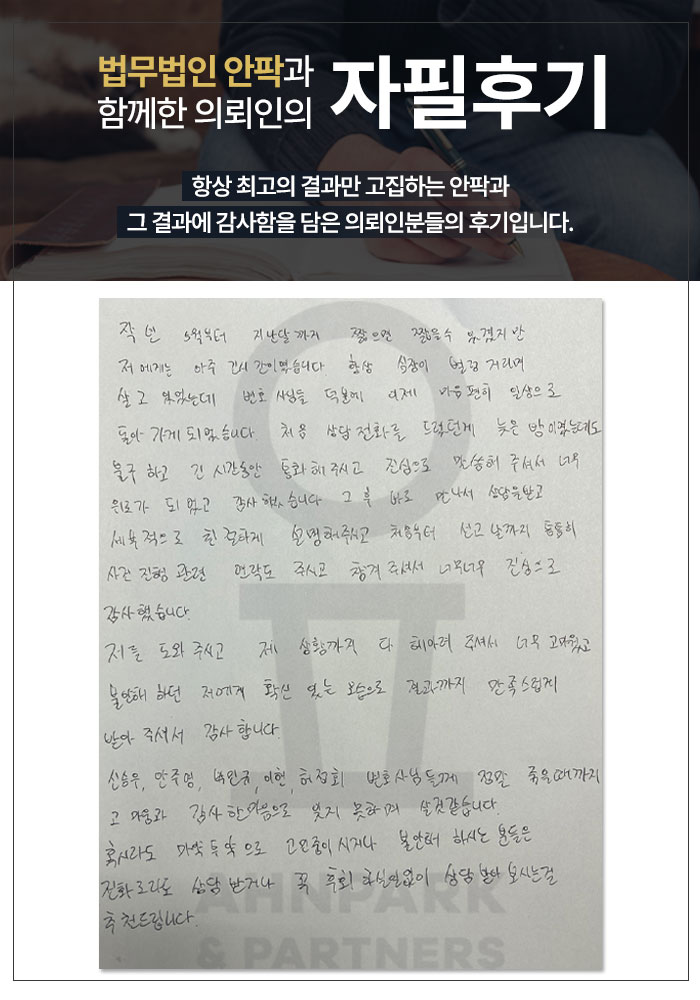 법무법인 안팍과
함께한 의뢰인의
자필후기
항상 최고의 결과만 고집하는 안팍과
그 결과에 감사함을 담은 의뢰인분들의 후기입니다.
작년 5월부터 지난달까지 짧으면 짧을수 있겠지만
저에게는 아주 긴시간이였습니다. 항상 심장이 벌렁거리며
살고 있었는데 변호사님들 덕분에 이제 마음편히 일상으로
돌아가게 되었습니다. 처음 상담전화를 드렸던게 늦은 밤이였는데도
불구하고 긴 시간동안 통화해주시고 진심으로 말씀해 주셔서 너무
위로가 되었고 감사했습니다. 그 후 바로 만나서 상담을받고
세부적으로 친절하게 설명해주시고 처음부터 선고날까지 틈틈히
사건 진행 관련 연락도 주시고 챙겨주셔서 너무너무 진심으로
감사했습니다.
저를 도와주시고 제 상황까지 다 헤아려 주셔서 너무 고마웠고
불안해 하던 저에게 확신 있는 모습으로 결과까지 만족스럽게
받아 주셔서 감사합니다.
신승우, 안주영, 박민규, 이현, 허정회 변호사님들께 정말 죽을때까지
고마움과 감사한마음으로 잊지 못하며 살것같습니다.
혹시라도 마약 투약으로 고민중이시거나 불안해 하시는 분들은
전화로라도 상담 받거나 꼭 후회하실일없이 상담 받아 보시는걸
추천드립니다.
AHNPARK
& PARTNERS